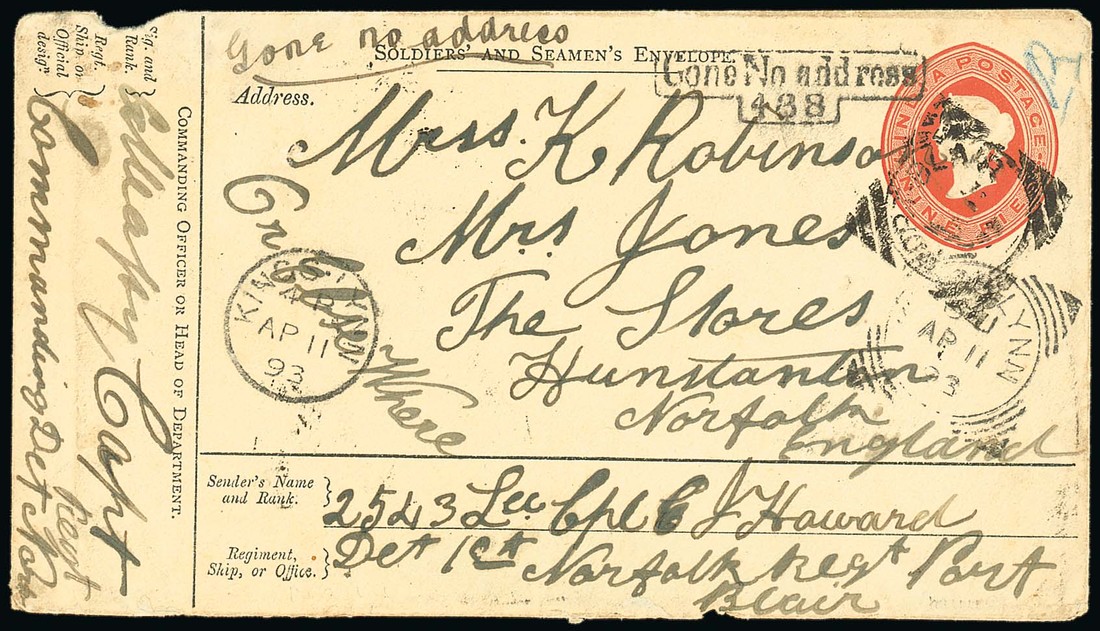 Gone no address
SOLDIERS' AND SEAMEN'S ENVELOPE.
Gone No address
488
INDIA POSTAGE
NINE PIE
Address.
Miss K Robinson
Mrs Jones
The Stores
Hunstanton
Norfolk
England
Gone
Where
AP 11
93
AP 11
93
LYNN
Sender's Name
and Rank.
2543 Lce Cpl C J Howard
Regiment,
Ship, or Office.
Det 1st Norfolk Regt Port
Blair
COMMANDING OFFICER OR HEAD OF DEPARTMENT.
Sig. and
Rank.
Capt
Regt.
Ship, or
Official
desigⁿ.
Commanding Det Norf
Regt